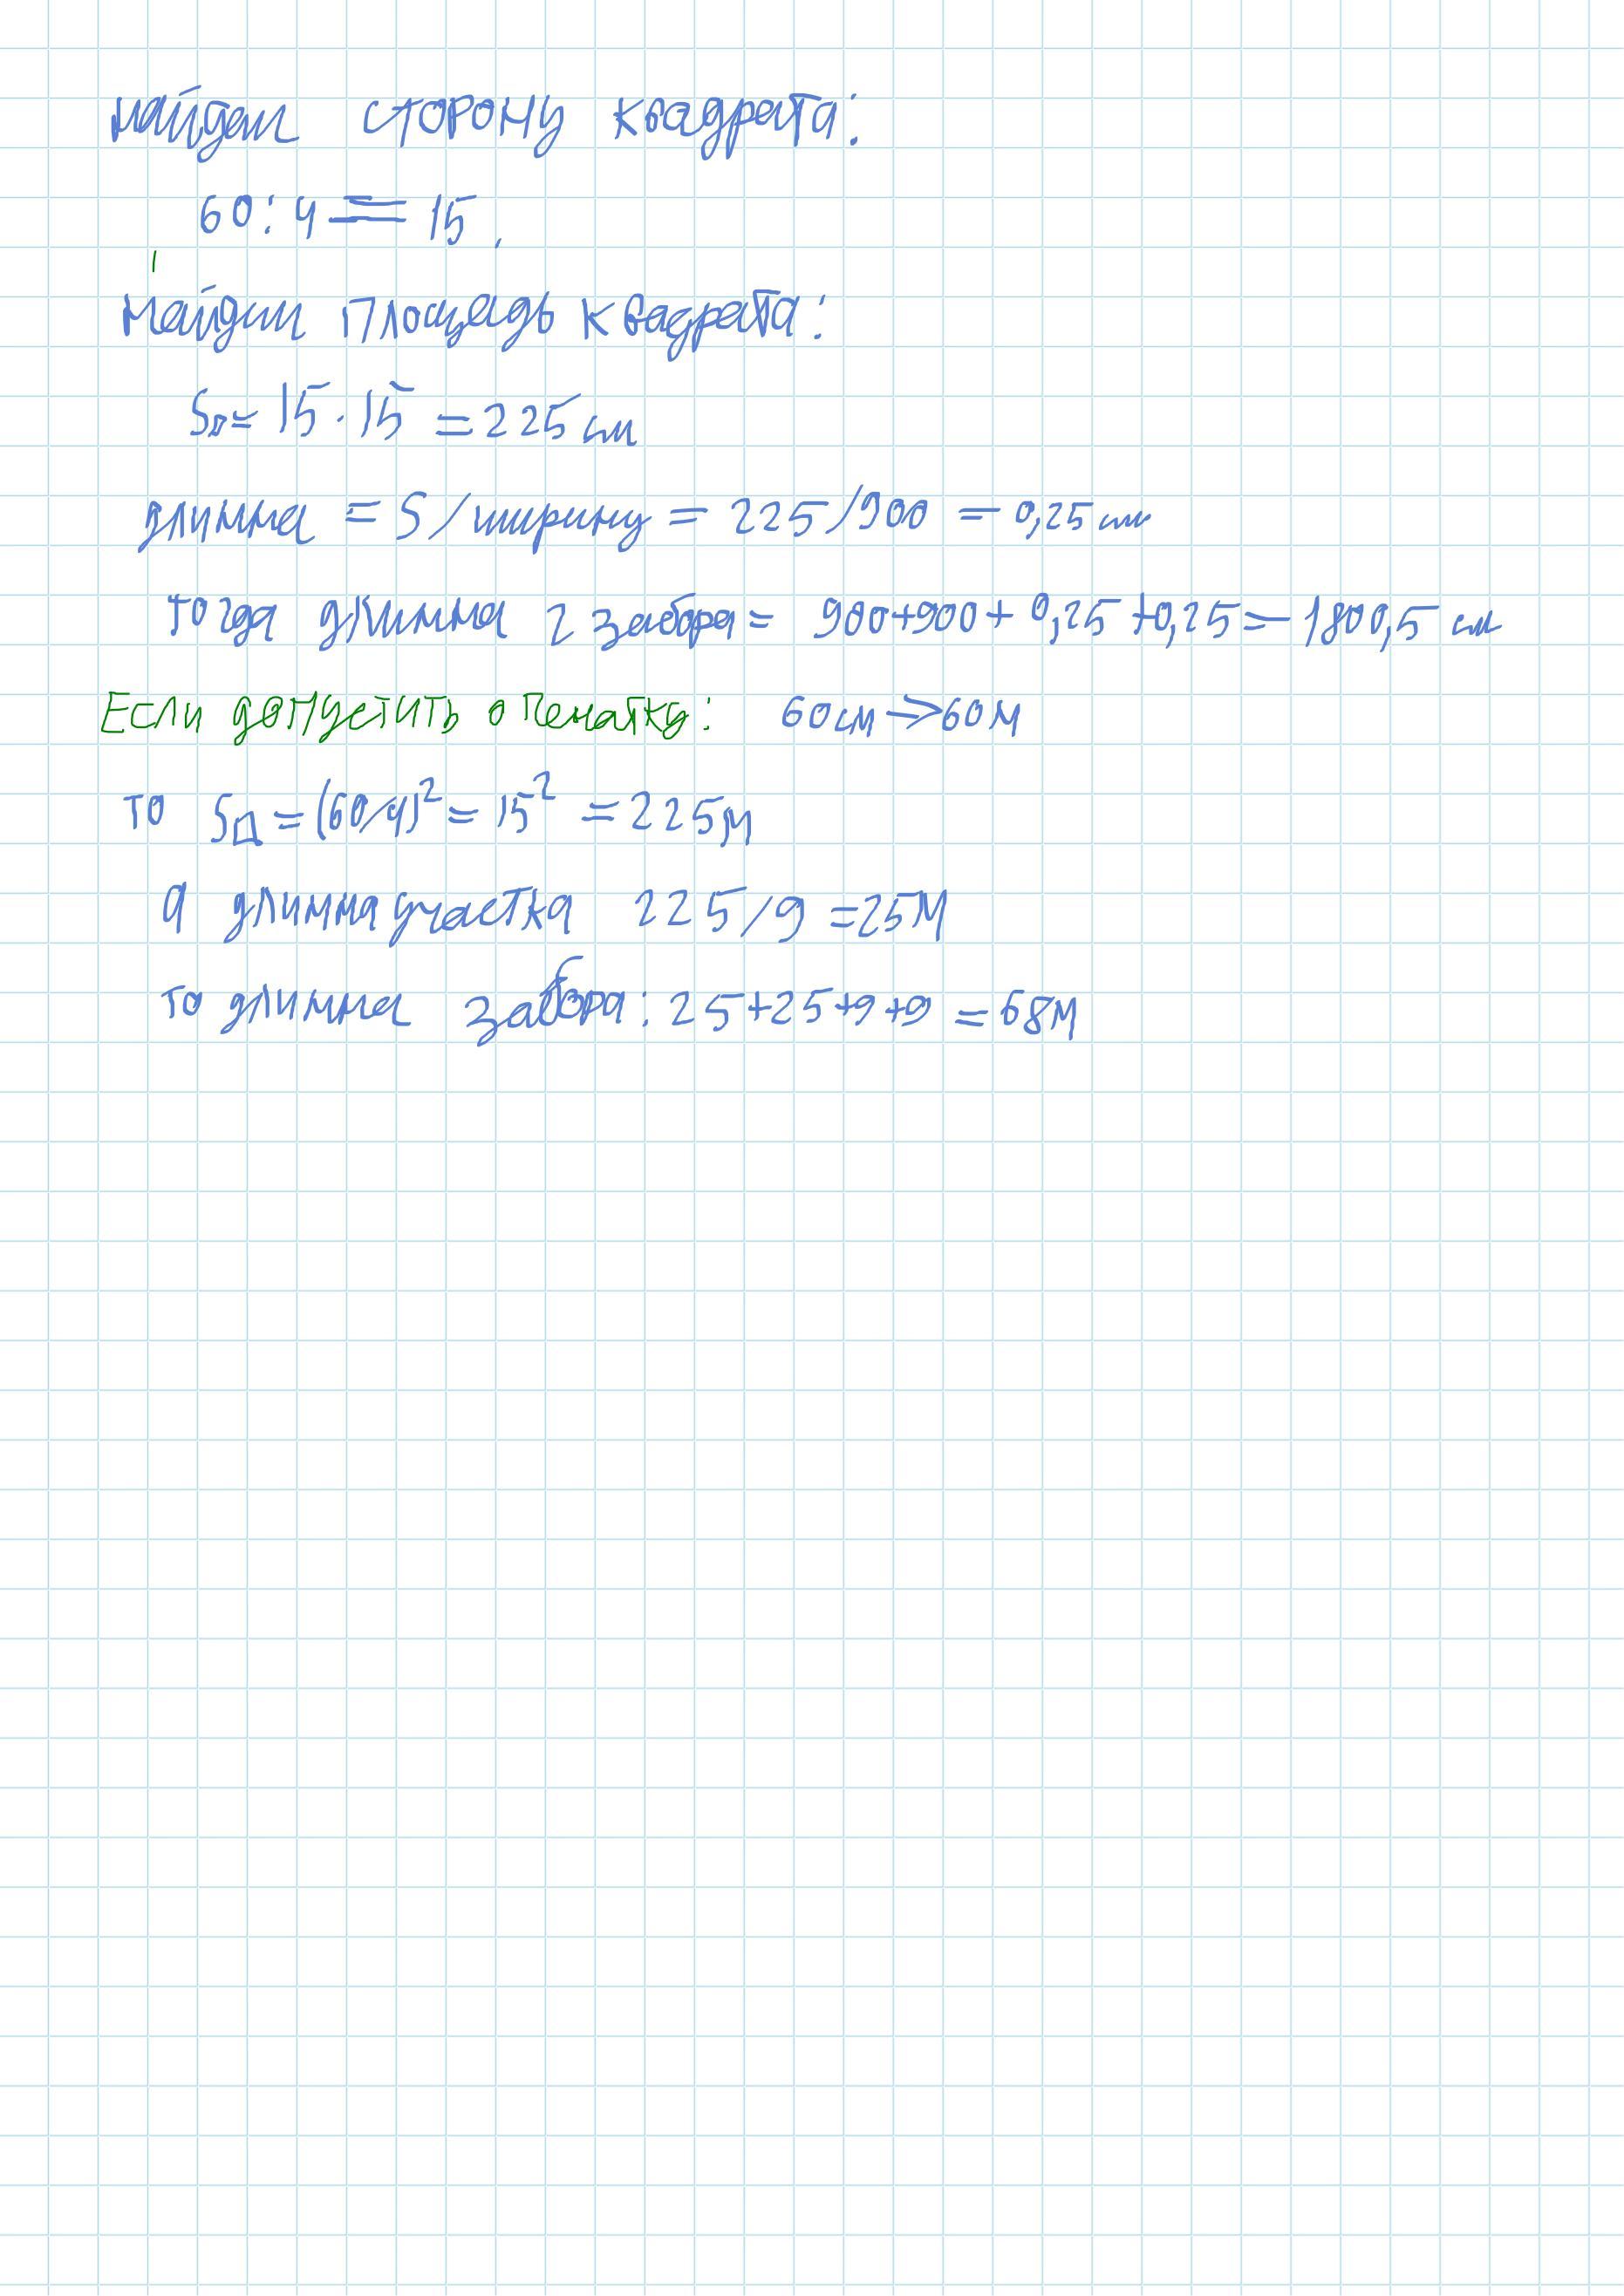 найдем сторону квадрата:
60:4 = 15.
Найдем площадь квадрата:
S□ = 15 · 15 = 225 см
длинна = S/ширину = 225/900 = 0,25 см
тогда длинна 2 забора = 900+900+0,25+0,25=1800,5 см
Если допустить опечатку: 60см → 60м
то S□ = (60/4)² = 15² = 225м
а длинна участка 225/9 = 25м
то длинна забора: 25+25+9+9 = 68м